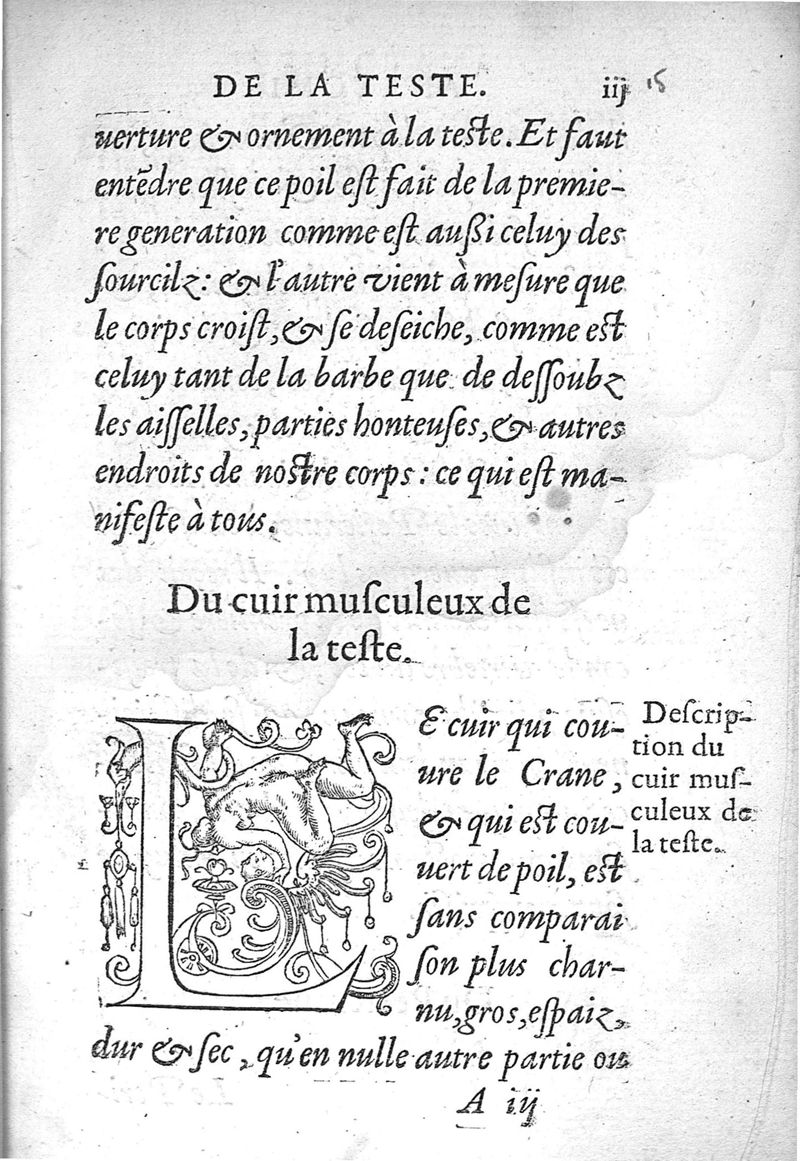 DE LA TESTE. iij 15
uerture & ornement à la teste. Et faut
entēdre que ce poil est fait de la premie-
re generation comme est außi celuy des
sourcilz: & l'autre vient à mesure que
le corps croist, & se deseiche, comme est
celuy tant de la barbe que de dessoubz
les aisselles, parties honteuses, & autres
endroits de nostre corps: ce qui est ma-
nifeste à tous.
Du cuir musculeux de
la teste.
LE cuir qui cou-
ure le Crane,
& qui est cou-
uert de poil, est
sans comparai
son plus char-
nu, gros, espaiz,
dur & sec, qu'en nulle autre partie ou
Descrip-
tion du
cuir mus-
culeux de
la teste.
A iij